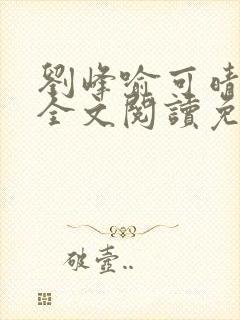 劉峰喻可晴
全文閱讀免
破壺..